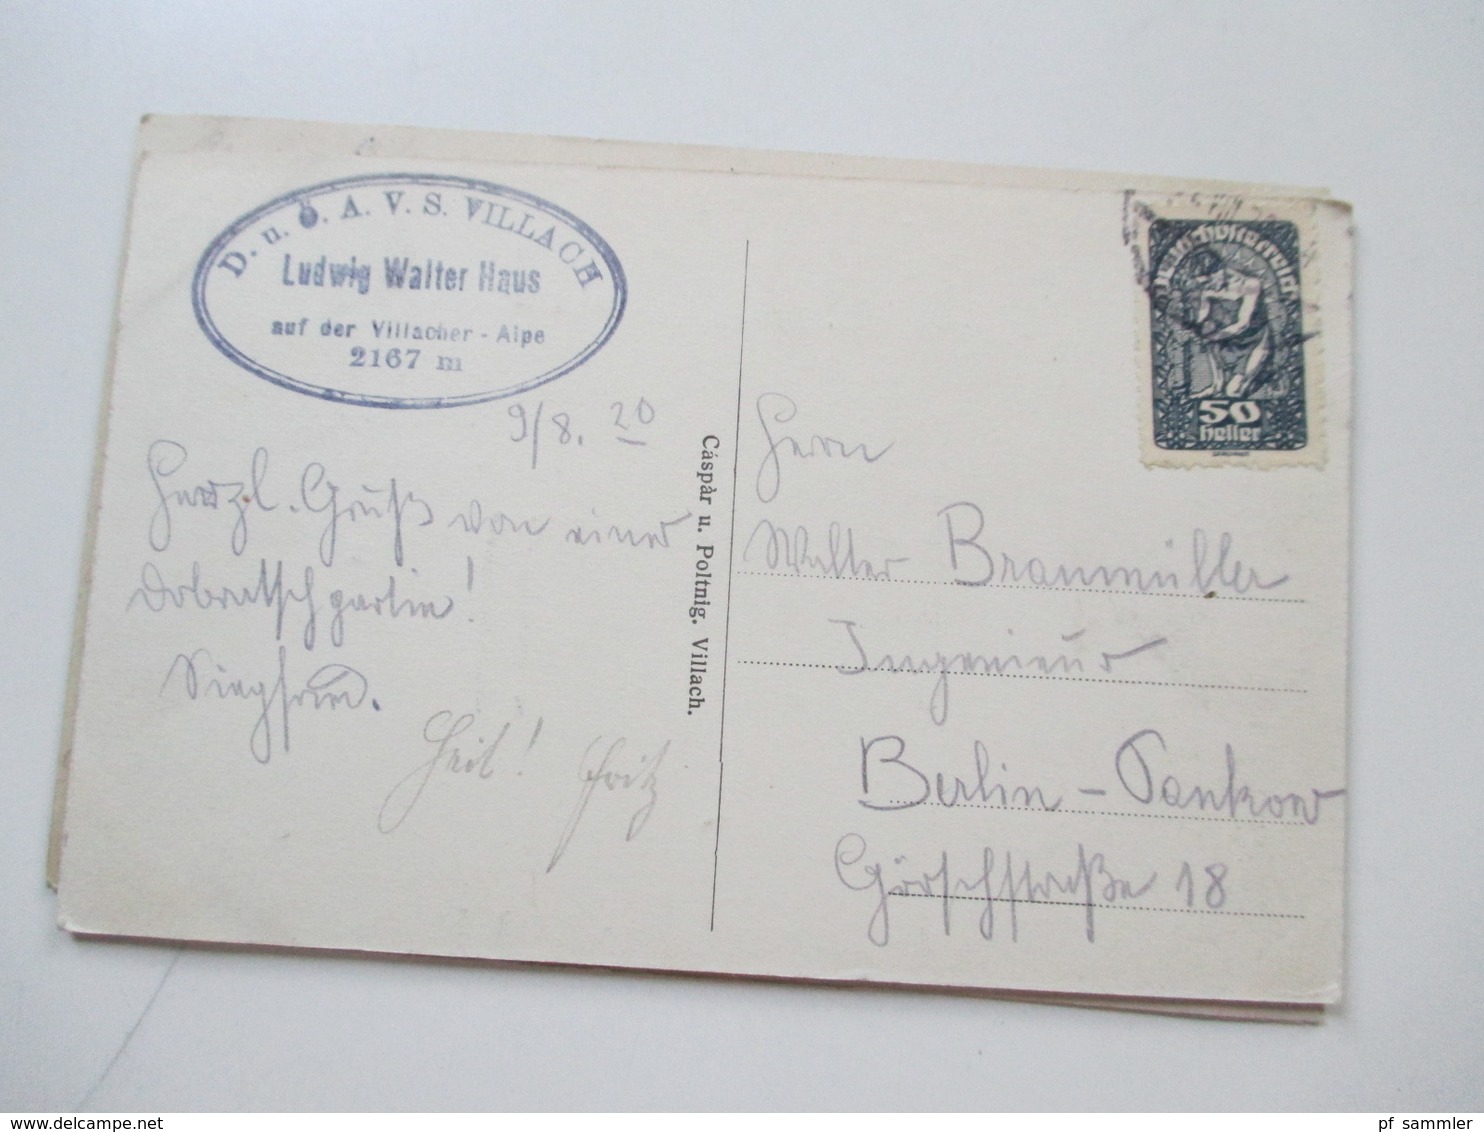 D. u. Ö. A. V. S. VILLACH
Ludwig Walter Haus
auf der Villacher - Alpe
2167 m
9/8. 20
Herzl. Gruß von einer
Dobratschpartie!
Siegfried.
Heil! Fritz
Cáspàr u. Poltnig. Villach.
Deutschösterreich
50
heller
Herrn
Walter Braumüller
Ingenieur
Berlin - Pankow
Görschstraße 18
pf_sammler